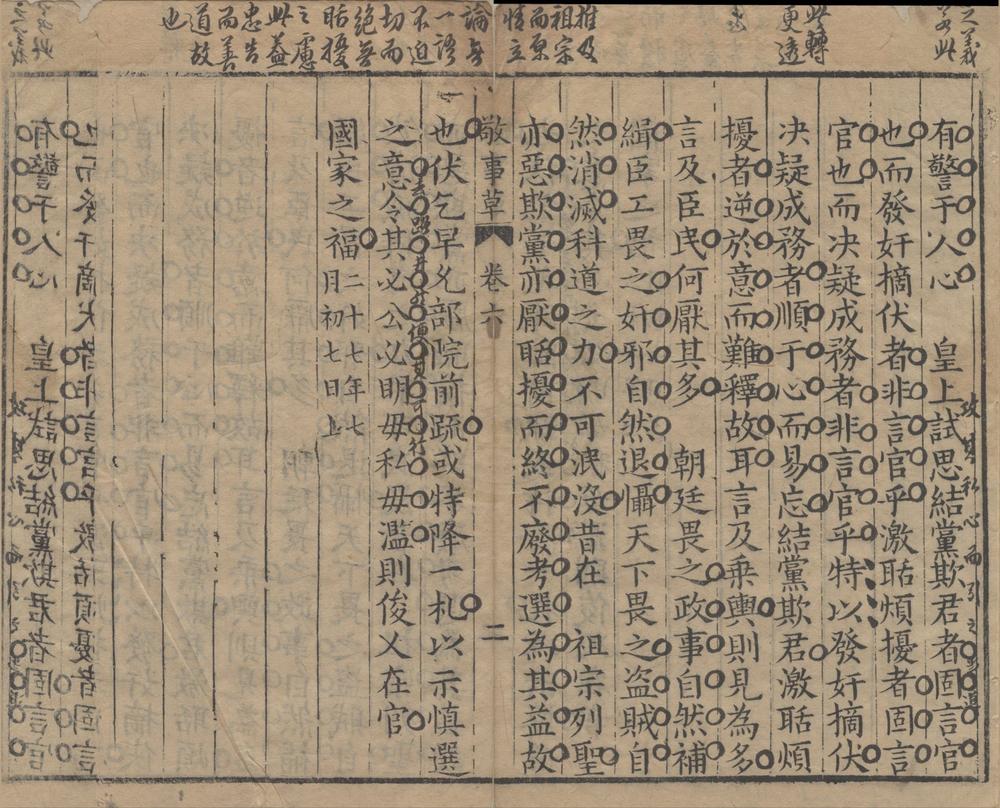 之義
若此
此轉
更透
推及
祖宗
而原
情立
論無
一語
不迫
切而
絕無
聒擾
之慮
此蓋
忠告
而善
道故
也
有警于人心　皇上試思結黨欺君者固言官
攻其私心而引之
也而發奸摘伏者非言官乎激聒煩擾者固言
官也而決疑成務者非言官乎特以發奸摘伏
决疑成務者順于心而易忘結黨欺君激聒煩
擾者逆於意而難釋故耳言及乗輿則見為多
言及臣民何厭其多　朝廷畏之政事自然補
緝臣工畏之奸邪自然退懾天下畏之盜賊自
然消滅科道之力不可泯沒昔在　祖宗列聖
亦惡欺黨亦厭聒擾而終不廢考選為其益故
敬事草　卷六　二
也伏乞早允部院前疏或特降一札以示慎選
之意令其必公必明毋私毋濫則俊乂在官
國家之福二十七年七
月初七日上